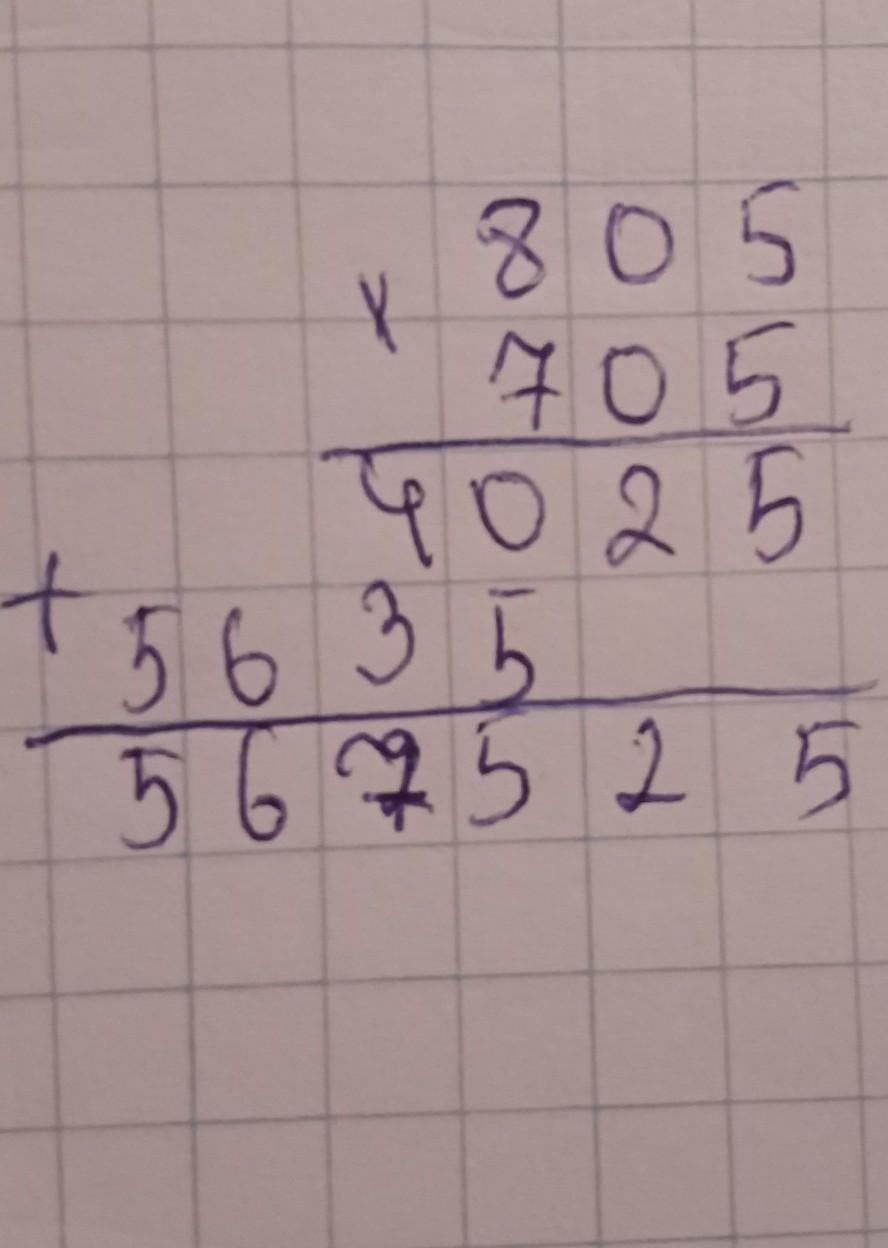 805
×
705
4025
+
5635
567525